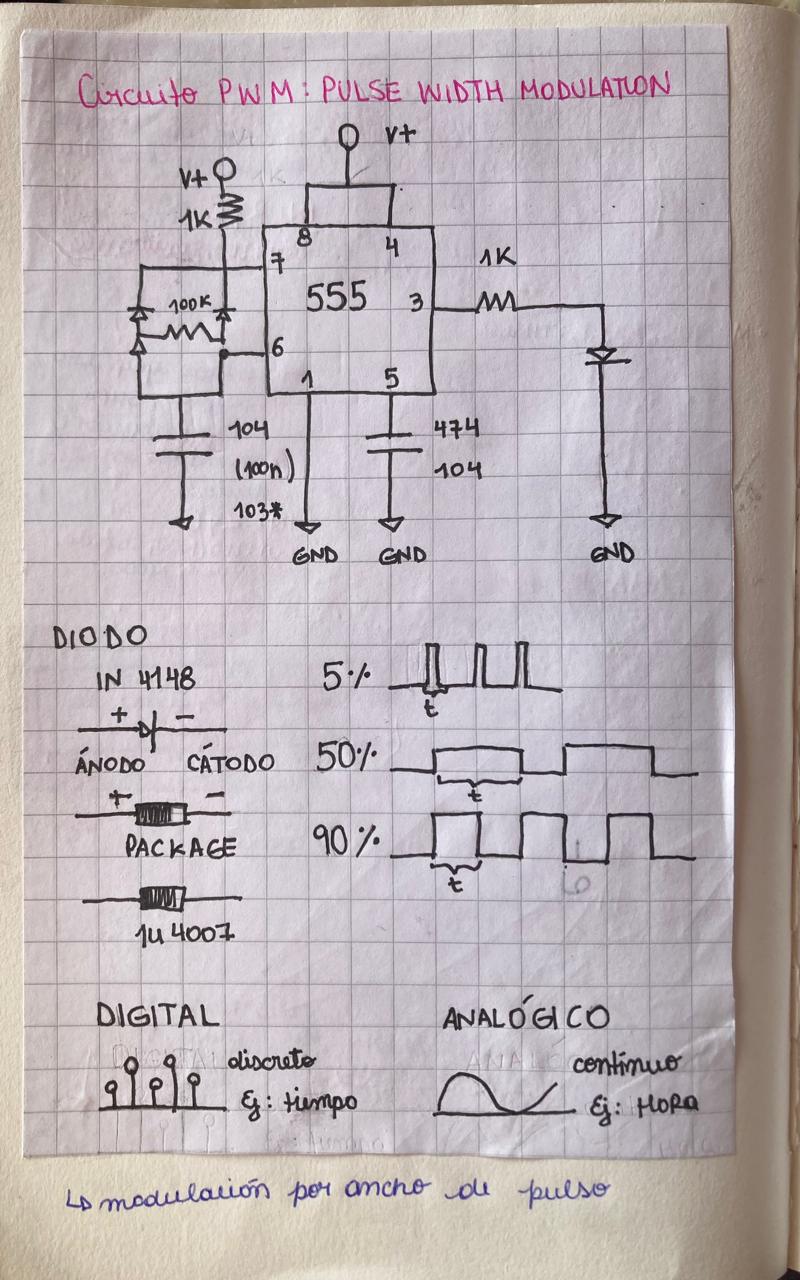 Circuito PWM: PULSE WIDTH MODULATION
V+
V+
1K
8
4
7
1K
100K
555
3
6
1
5
104
(100n)
103*
474
104
GND
GND
GND
DIODO
IN 4148
+ -
ÁNODO CÁTODO
+ -
PACKAGE
1u 4007
5%
t
50%
t
90%
t
DIGITAL
discreto
Ej: tiempo
ANALÓGICO
contínuo
Ej: HORA
↳ modulación por ancho de pulso